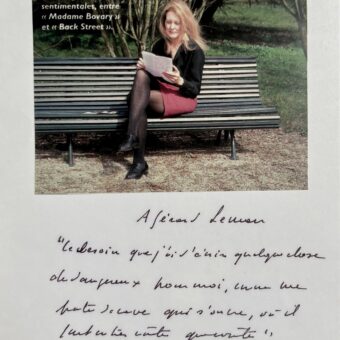 sentimentales, entre
« Madame Bovary »
et « Back Street ».
A Gérard
"Le besoin que j'ai d'écrire quelque chose
de dangereux pour moi, comme une
porte de cave qui s'ouvre, où il
faut entrer coûte que coûte".